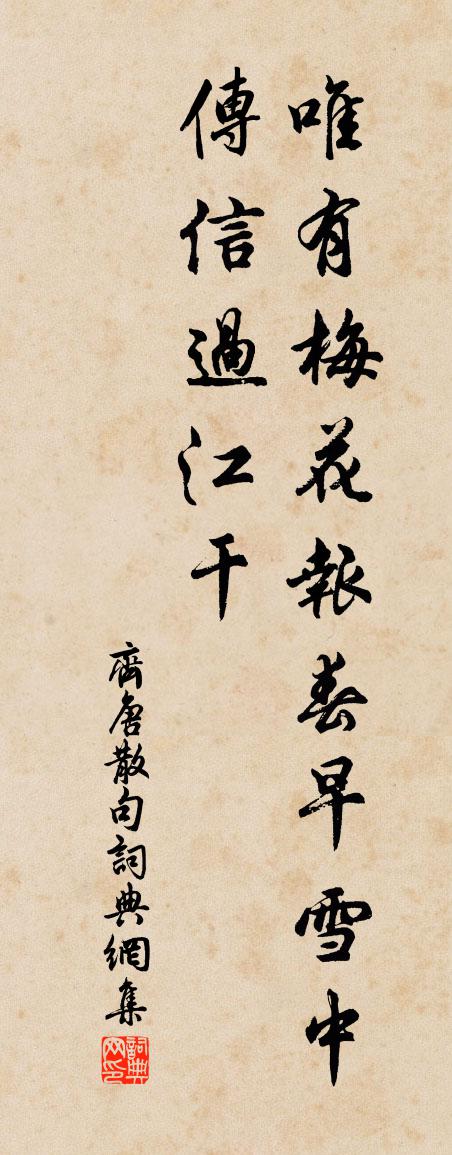 唯有梅花報春早雪中
傳信過江干
齊唐散句詞典網集
詞典网印